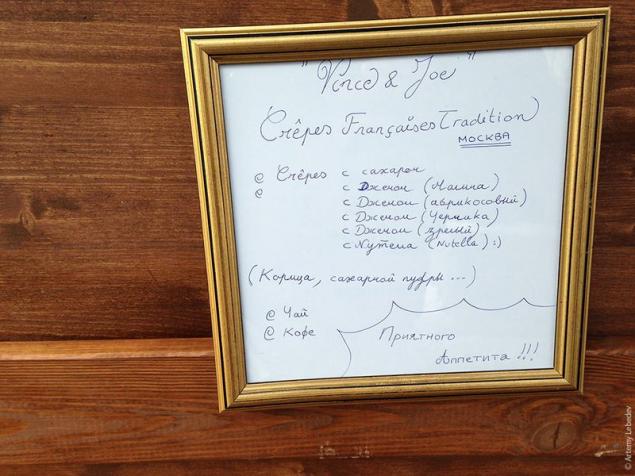 "Vince & Joe"
Crêpes Françaises Tradition)
МОСКВА
@ Crêpes с сахаром
@ с Джемом (Малина)
с Джемом (абрикосовый)
с Джемом (Черника)
с Джемом (зрелый)
с Nутела (Nutella) :)
(Корица, сахарной пудры ...)
@ Чай
@ Кофе
Приятного
Аппетита !!!
© Artemy Lebedev